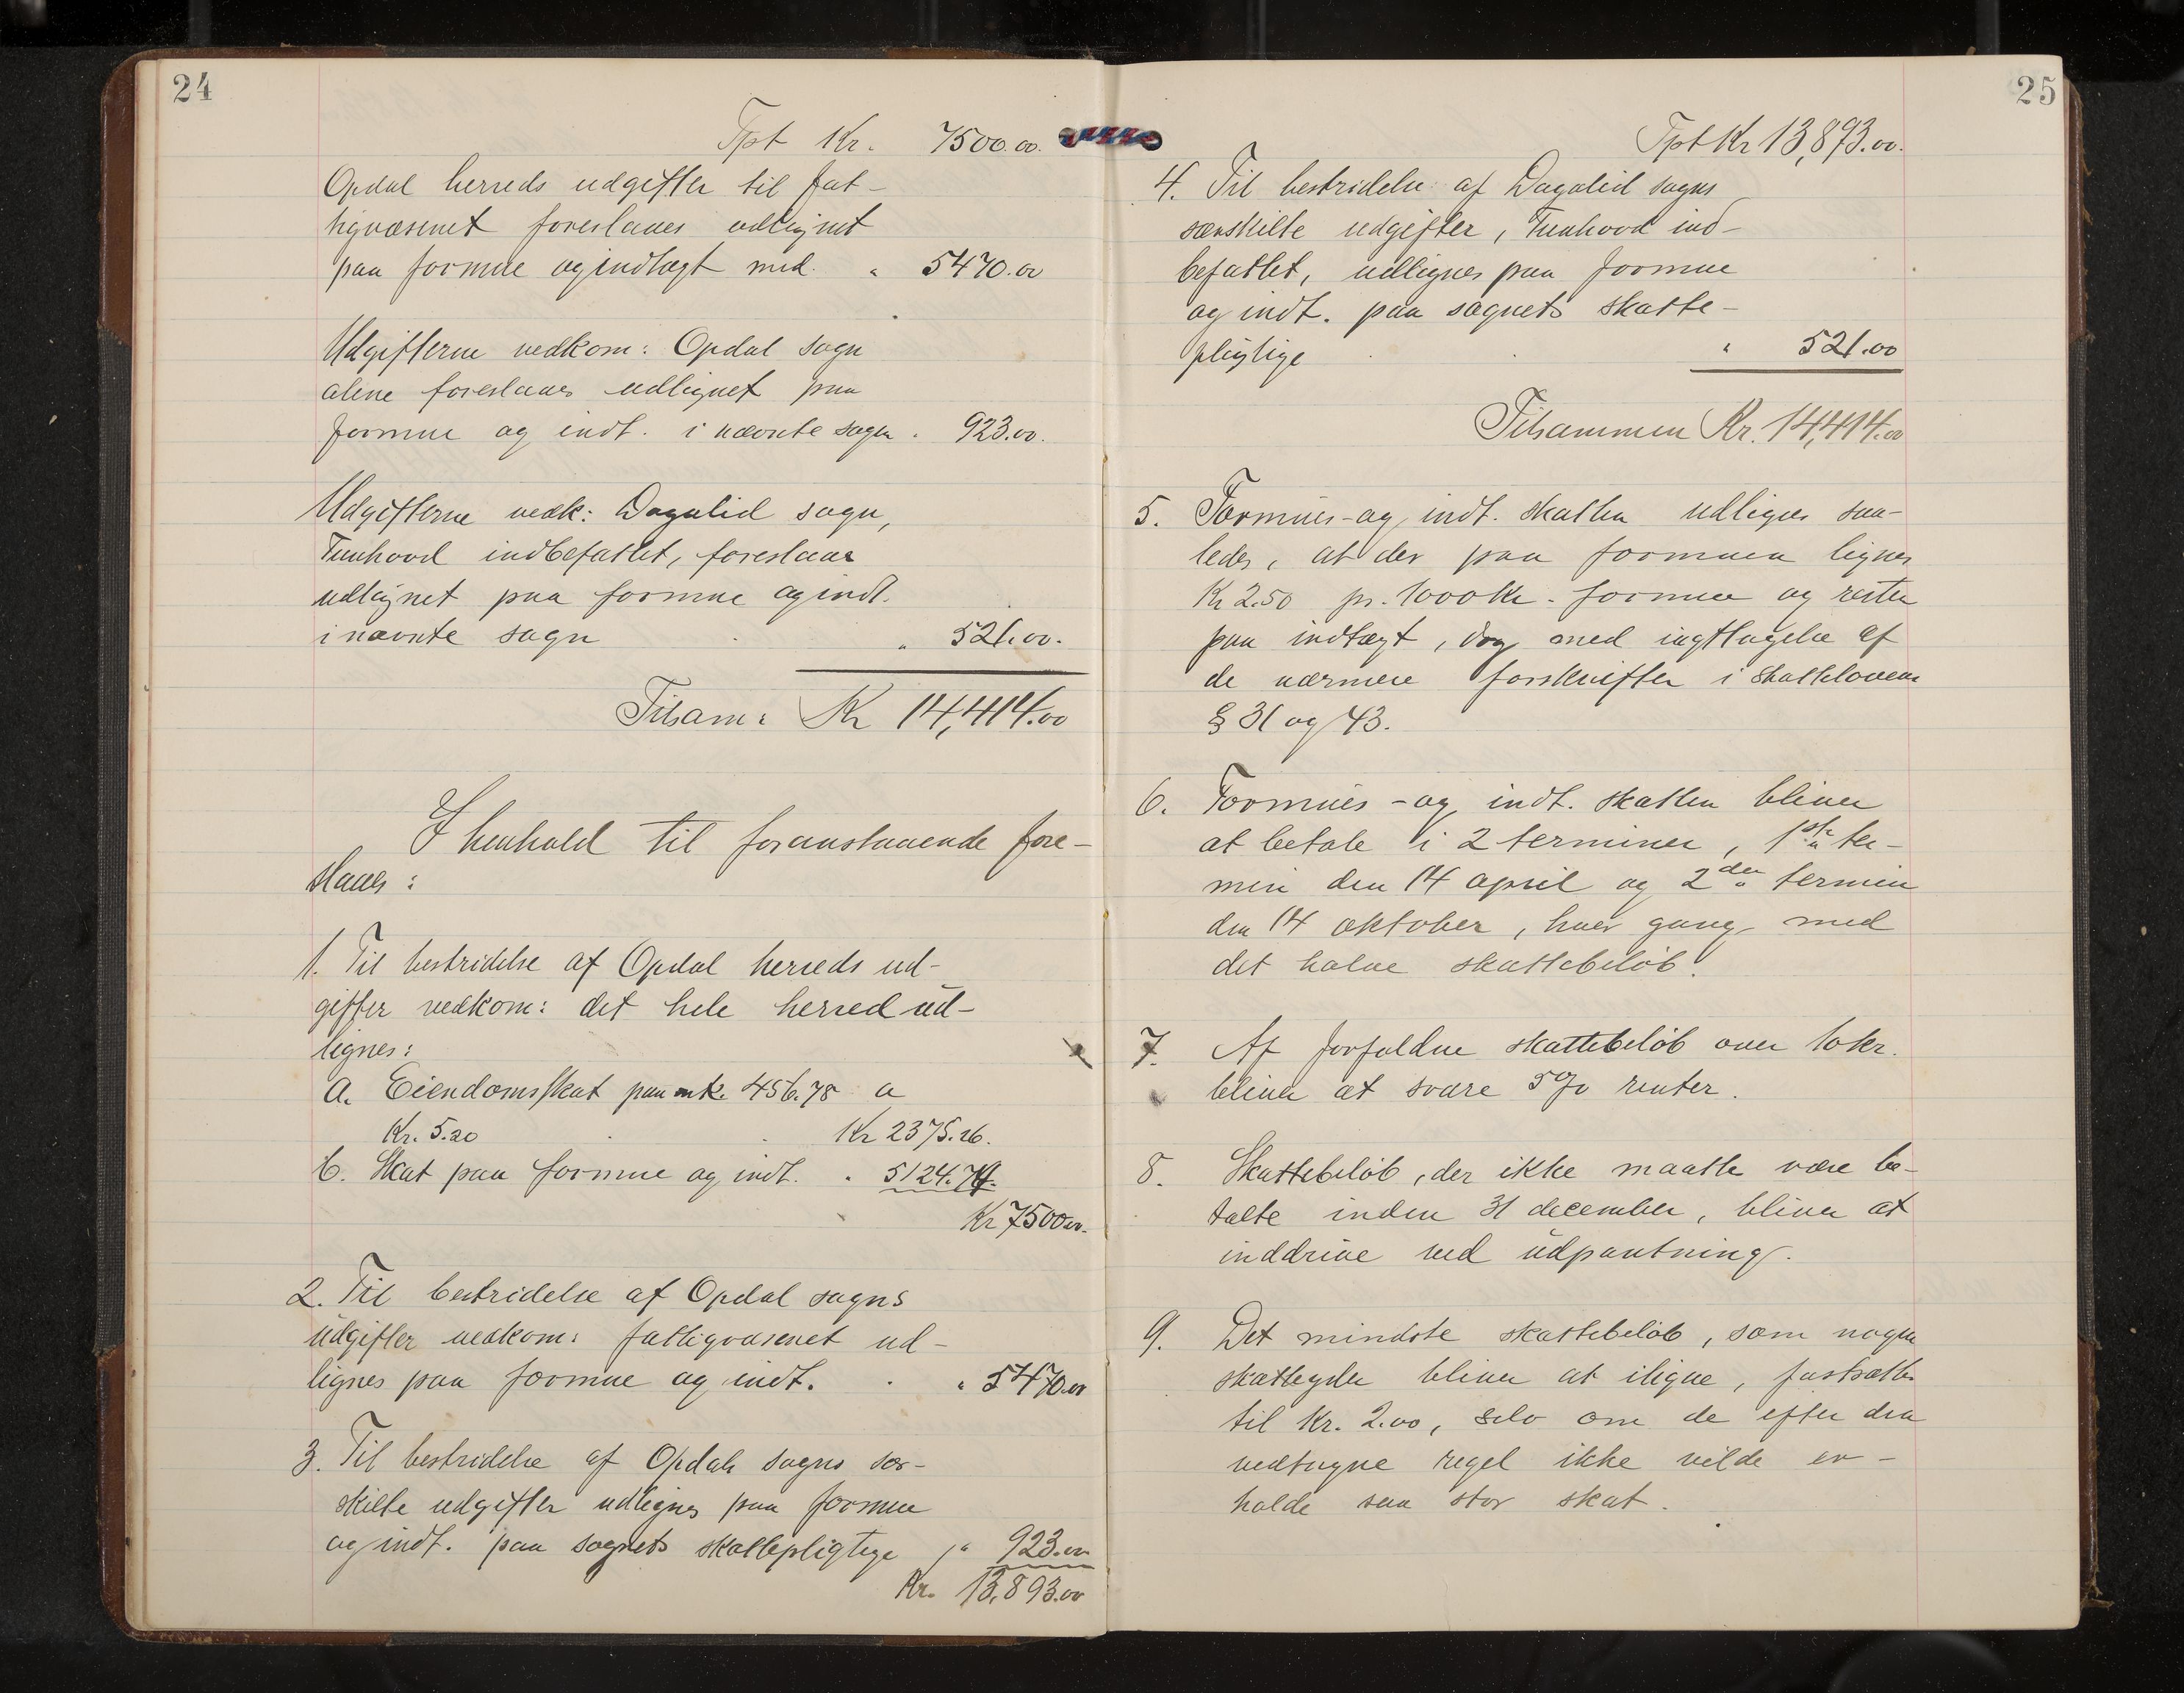 24
Tpt Kr. 7500.00.
Opdal herreds udgifter til fat-
tigvæsenet foreslaaes udlignet
paa formue og indtægt med. " 5470.00
Udgifterne vedkom: Opdal sogn
alene foreslaaes udlignet paa
formue og indt. i nævnte sogn " 923.00.
Udgifterne vedk: Dagalid sogn,
Tunhovd indbefattet, foreslaaes
udlignet paa formue og indt.
i nævnte sogn " 521.00.
Tilsam: Kr 14,414.00
I henhold til foranstaaende fore-
slaaes:
1. Til bestridelse af Opdal herreds ud-
gifter vedkom: det hele herred ud-
lignes:
a. Eiendomsskat paa mk. 456.78 a
Kr. 5.20 Kr 2375.26.
b. Skat paa formue og indt. " 5124.74.
Kr 7500.00.
2. Til bestridelse af Opdal sogns
udgifter vedkom: fattigvæsenet ud-
lignes paa formue og indt. " 5470.00
3. Til bestridelse af Opdals sogns sær-
skilte udgifter udlignes paa formue
og indt. paa sognets skattepligtige " 923.00
Kr. 13,893.00
25
Tpt Kr 13,893.00.
4. Til bestridelse af Dagalid sogns
særskilte udgifter, Tunhovd ind-
befattet, udlignes paa formue
og indt. paa sognets skatte-
pligtige " 521.00
Tilsammen Kr. 14,414.00
5. Formues- og indt. skatten udlignes saa-
ledes, at der paa formuen lignes
Kr 2.50 pr. 1000 Kr. formue og resten
paa indtægt, dog med iagttagelse af
de nærmere forskrifter i skatteloven
§ 31 og 43.
6. Formues- og indt. skatten bliver
at betale i 2 terminer, 1ste ter-
min den 14 april og 2den termin
den 14 oktober, hver gang med
det halve skattebeløb.
7. Af forfaldne skattebeløb over 10 kr.
bliver at svare 5 % renter.
8. Skattebeløb, der ikke maatte være be-
talte inden 31 december, bliver at
inddrive ved udpantning.
9. Det mindste skattebeløb, som nogen
skatteyder bliver at iligne, fastsættes
til Kr. 2.00, selv om de efter den
vedtagne regel ikke vilde er-
holde saa stor skat.